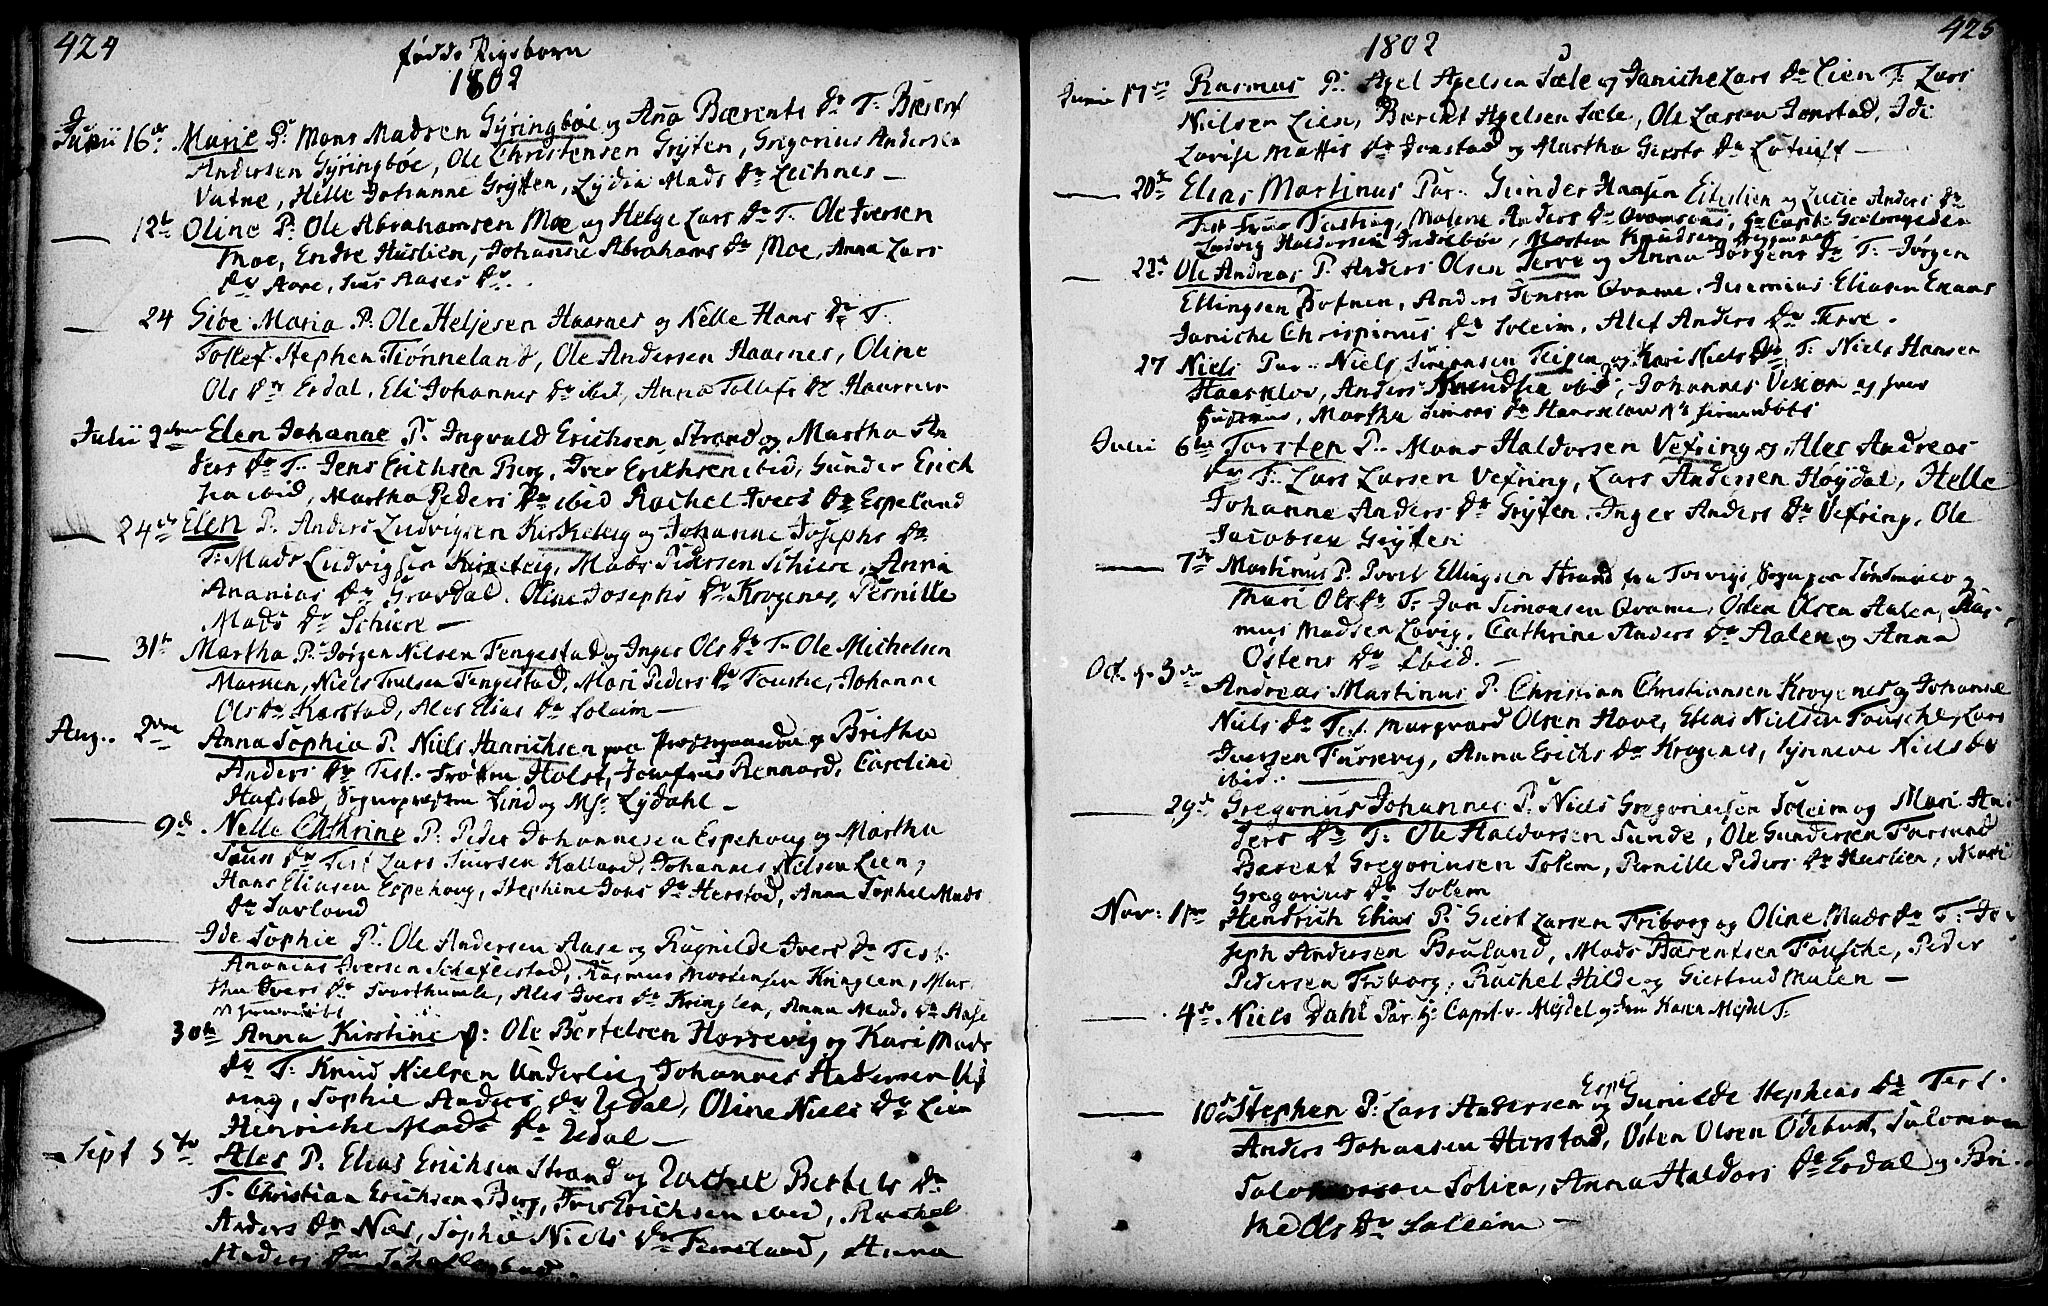 424
fødde Pigebørn
1802
Junii 16de Marie P. Mons Madsen Gyringbøe og Ana Bærents Dr T. Bærent
Andersen Gyringbøe, Ole Christensen Grytten, Gregorius Andersen
Vatne, Helle Johanne Grytten, Lydia Mads Dr Leitnes
12t Oline P. Ole Abrahamsen Moe og Helge Lars Dr T. Ole Iversen
Moe, Endre Huslien, Johanne Abrahams Dr Moe, Anna Lars
Dr Aase, Aases Dr
24 Gibe Maria P. Ole Heljesen Haarnes og Nelle Hans Dr T.
Tollef Stephen Tiønneland, Ole Andersen Haarnes, Oline
Ols Dr Erdal, Eli Johannes Dr ibid, Anna Tollefs Dr Haarnes
Julii 2den Elen Johanne P. Ingvald Erichsen Strand og Martha An
ders Dr T. Jens Erichsen Berg, Iver Erichsen ibid, Gunder Erich
sen ibid, Martha Peders Dr ibid Rachel Ivers Dr Espeland
24de Elen P. Anders Ludvigsen Kirkeberg og Johanne Josephs Dr
T. Mads Ludvigsen Kirkeberg, Mads Pedersen Schiere, Anna
Ananias Dr Gravdal, Oline Josephs Dr Krogenes, Pernille
Mads Dr Schiere
31t Martha P. Jørgen Nilsen Tengestad og Inger Ols Dr T. Ole Michelsen
Marsten, Niels Trulsen Tengestad, Mari Peders Dr Fouske, Johanne
Ols Dr Karstad, Ales Elias Dr Soleim
Aug. 2den Anna Sophia P. Niels Henrichsen paa Prestegaarden og Britha
Anders Dr Test. Frøken Holst, Jomfrue Rennord, Caroline
Hafstad, Sognepresten Lind og Msr Lydahl
9de Nelle Cathrine P. Peder Johannesen Espehoug og Martha
Dr Test Lars Siursen Kalland, Johannes Nilsen Lien,
Hans Eliasen Espehoug, Stephine Jons Dr Herstad, Anna Sophie Mads
Dr Savland
Ide Sophie P. Ole Andersen Aase og Ragnilde Ivers Dr Test
Ananias Iversen Schaflestad, Rasmus Mortensen Kringlen, Mar
tha Ivers Dr Svorthumle, Ales Ivers Dr Kringlen, Anna Mads Dr Aase
30te Anna Kirstine P. Ole Bertelsen Horsevig og Kari Mads
Dr T. Knud Nielsen Underlie, Johannes Andersen Vef
ring, Sophie Anders Dr Udal, Oline Niels Dr Lien
Henriche Mads Dr Udal
Sept 5te Ales P. Elias Erichsen Strand og Rachel Bertels Dr
T. Christian Erichsen Berg, Iver Erichsen ibid, Rachel
Anders Dr Næs, Sophie Niels Dr Fureland, Anna
Anders Dr Schaflestad
425
1802
Junii 17de Rasmus P. Axel Axelsen Sæle og Janiche Lars Dr Lien T. Lars
Nielsen Lien, Bærent Axelsen Sæle, Ole Larsen Jonstad, Ide
Lovise Mattis Dr Jonstad og Martha Gierts Dr
20de Elias Martinus Par. Gunder Hansen Eitelien og Lucie Anders Dr
Test Malene Anders Dr Hr Capt.
Ludvig Haldorsen Indrebøe, Morten Knudsen
22de Ole Andreas P. Anders Olsen Terve og Anna Jørgens Dr T. Jørgen
Ellingsen Bofnen, Anders Jensen Qvame, Jeremias Eliasen
Janiche Chrispinus Dr Soleim, Alet Anders Dr Terve.
27 Niels Par. Niels Simonsen Teigen og Kari Niels Dr T. Niels Hansen
Haarklov, Anders ibid, Johannes og
Martha Simons Dr Haarklow
Julii 6te Torsten P. Mons Haldorsen Vefring og Ales Andreas
Dr T. Lars Larsen Vefring, Lars Andersen Høydal, Helle
Johanne Anders Dr Grytten, Inger Anders Dr Vefring, Ole
Jacobsen Grytten
7de Martinus P. Povel Ellingsen Strand fra Sogn og
Mari Ols Dr T. Jon Simonsen Qvame, Osten Olsen Aalen, Ras-
mus Madsen Løvig, Cathrine Anders Dr Aalen og Anna
Ostens Dr ibid.
Oct. 3de Andreas Martinus P. Christian Christiansen Krogenes og Johanne
Niels Dr Test. Marqvard Olsen Hove, Elias Nielsen Fousche, Lars
Iversen Fursevig, Anna Erichs Dr Krogenes, Synneve Niels Dr
ibid.
29de Gregorius Johannes P. Niels Gregoriusen Soleim og Mari An-
ders Dr T. Ole Haldorsen Sunde, Ole Gundersen Farsund
Bærent Gregoriusen Solem, Pernille Peders Dr Huslien, Mari
Gregorius Dr Solem
Nov: 1te Hendrich Elias P. Giert Larsen Friborg og Oline Mads Dr T. Jo-
seph Andersen Bruland, Mads Bærentsen Fousche, Peder
Pedersen Friborg, Rachel Hilde og Giertrud Malen
4de Niels Dahl Par Hr Capit v. Mejdel og Karen Mejdel T.
10de Stephen P. Lars Andersen Espe og Gunilde Stephens Dr Test.
Anders Johansen Herstad, Osten Olsen Odebust, Salomon
Salomonsen Solien, Anna Haldors Dr Erdal og Bri-
the Ols Dr Soleim